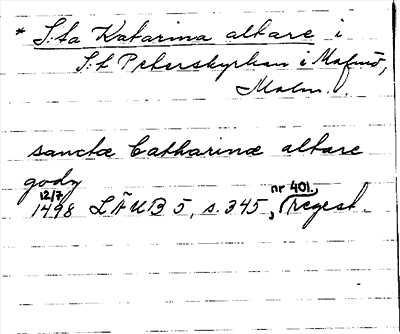 * S:ta Katarina altare i
S:t Peterskyrkan i Malmö,
Malm.
sanctæ Catharinæ altare
gody
12/7
1498 LÄUB 5, s. 345, nr 401, regest.